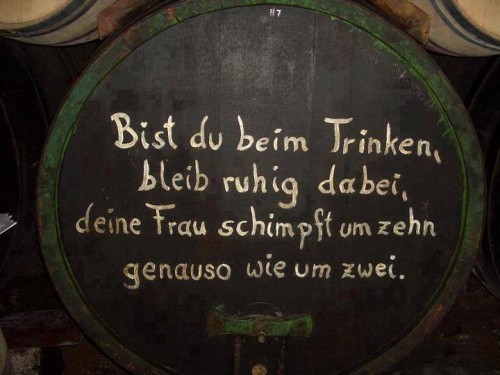 117
Bist du beim Trinken,
bleib ruhig dabei,
deine Frau schimpft um zehn
genauso wie um zwei.